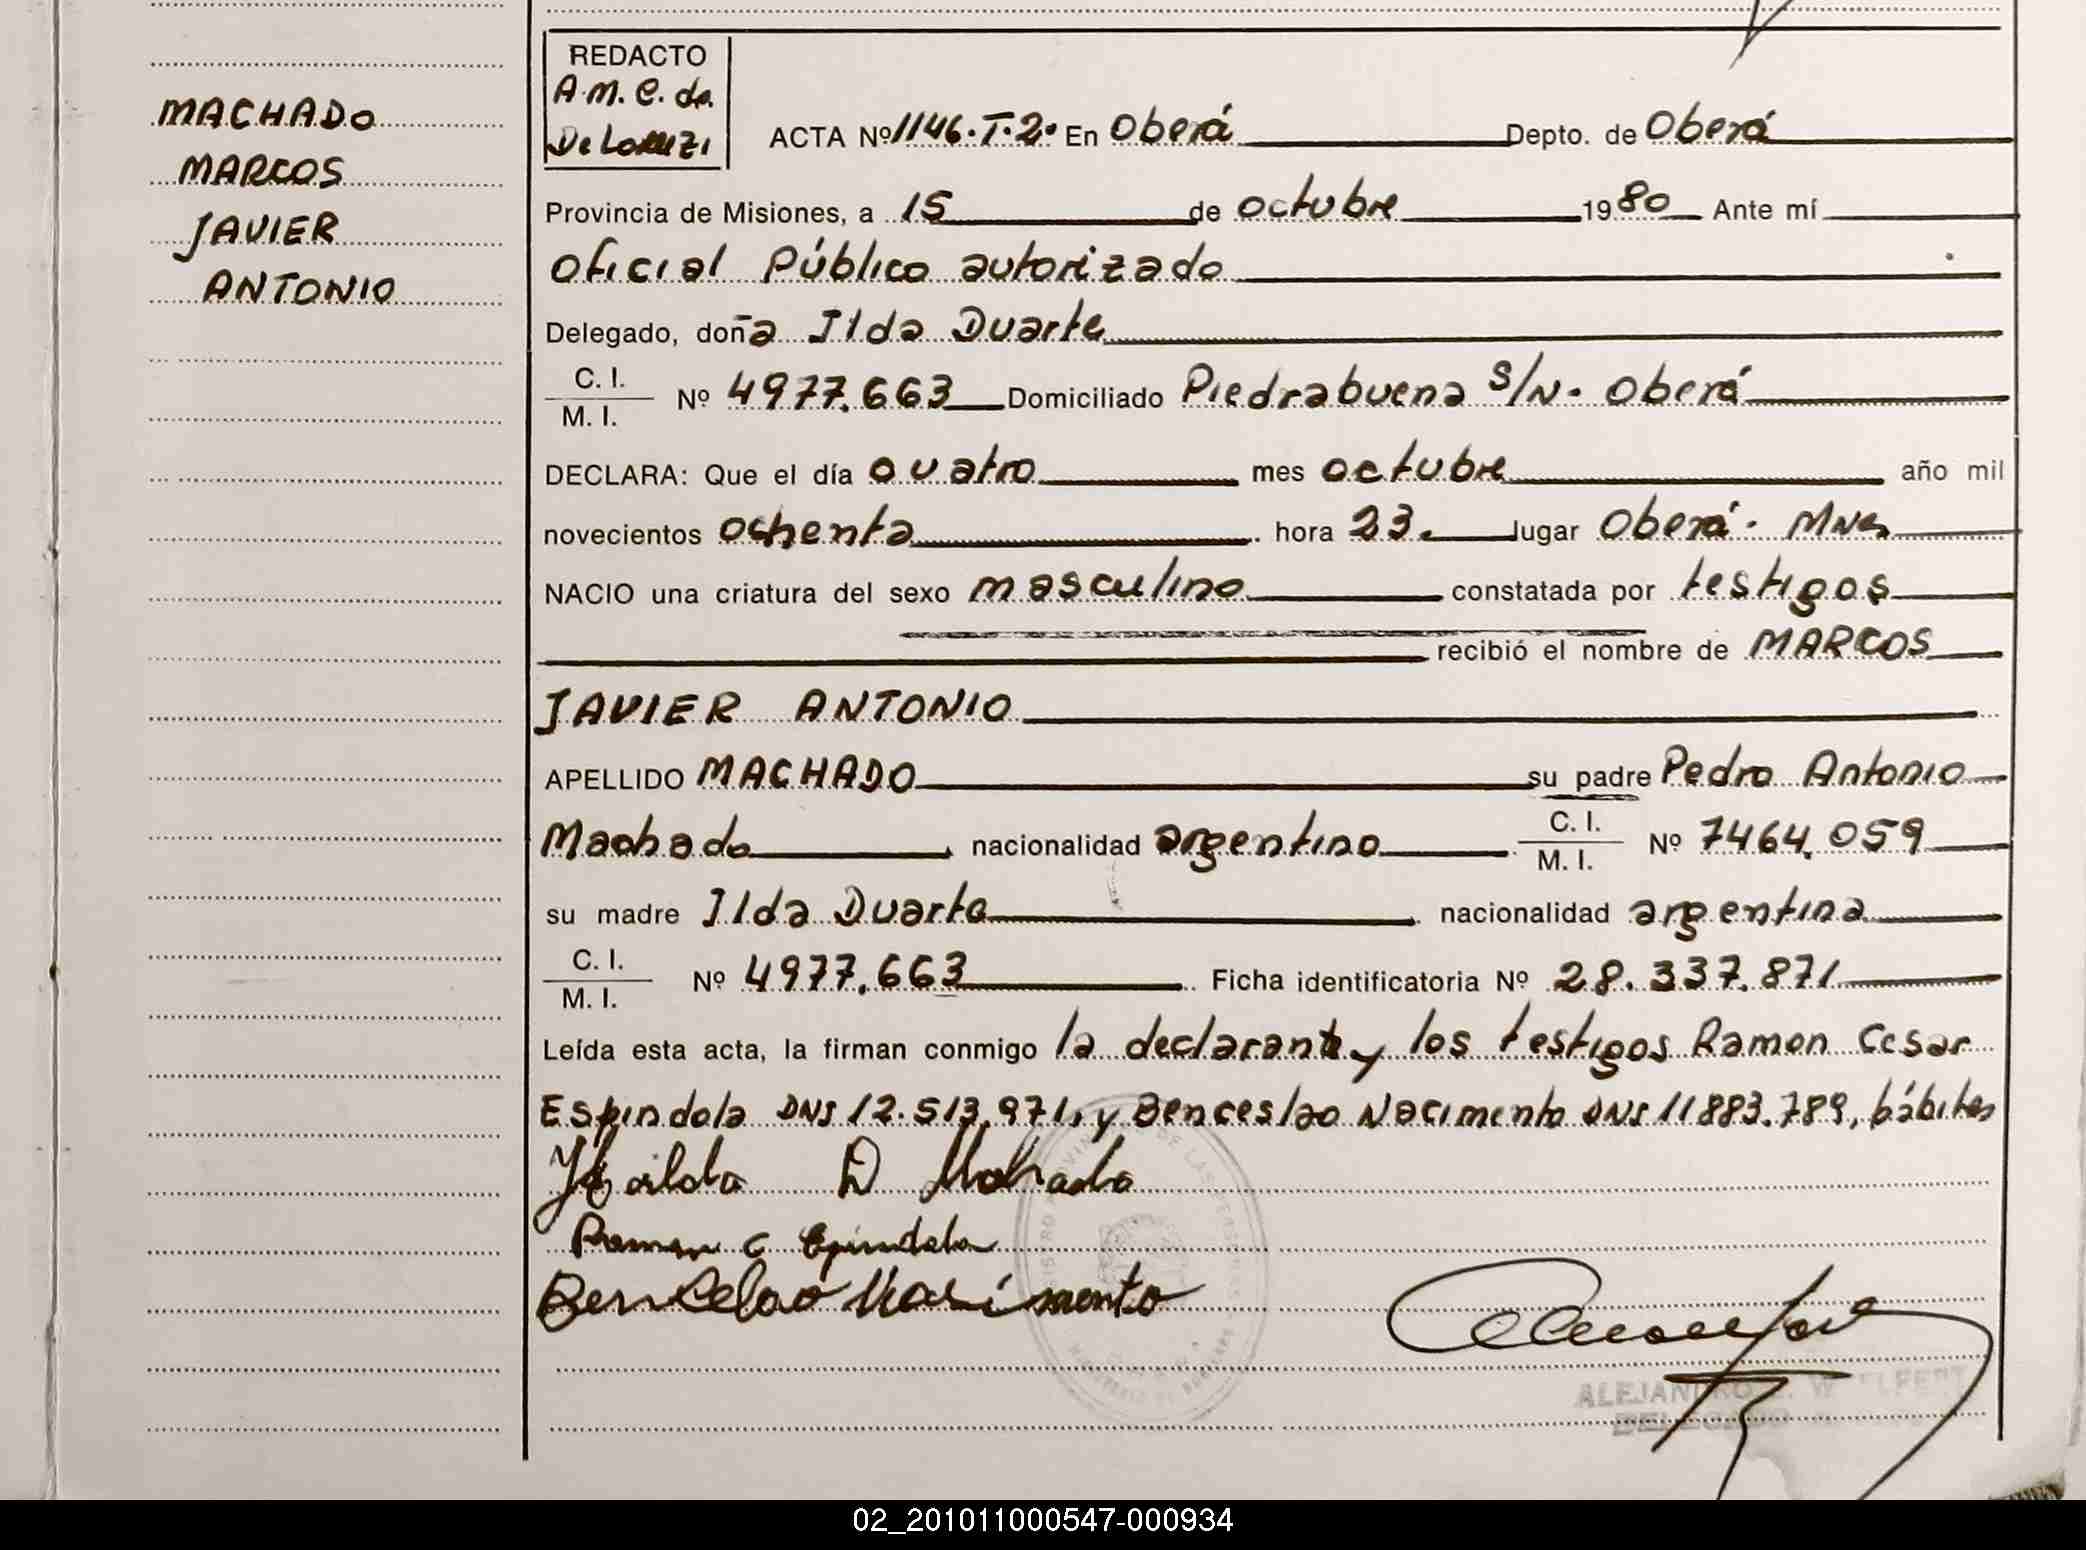 MACHADO
MARCOS
JAVIER
ANTONIO
REDACTO
A.M.C. de
De Lorenzi
ACTA Nº 1146.T.2. En Oberá Depto. de Oberá
Provincia de Misiones, a 15 de octubre 1980 Ante mí
Oficial Público autorizado
Delegado, doña Ilda Duarte
C. I.
M. I. Nº 4977.663 Domiciliado Piedrabuena S/N. Oberá
DECLARA: Que el día cuatro mes octubre año mil
novecientos ochenta hora 23. lugar Oberá. Mnes
NACIO una criatura del sexo masculino constatada por testigos
recibió el nombre de MARCOS
JAVIER ANTONIO
APELLIDO MACHADO su padre Pedro Antonio
Machado nacionalidad argentino C. I.
M. I. Nº 7464.059
su madre Ilda Duarte nacionalidad argentina
C. I.
M. I. Nº 4977.663 Ficha identificatoria Nº 28.337.871
Leída esta acta, la firman conmigo la declarante y los testigos Ramon Cesar
Espindola DNI 12.513.971, y Benceslao Nacimento DNI 11883.789, hábiles
D Machado
Ramon C Epindola
Benselao Nasimento
DELEGADO
02_201011000547-000934